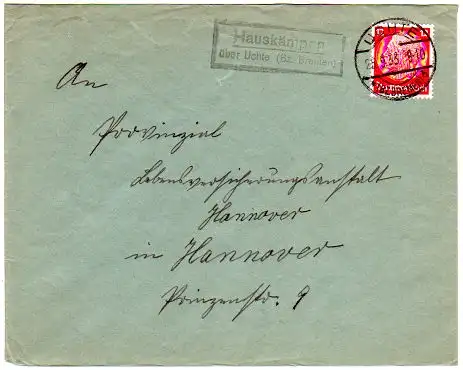 Hauskämpen
über Uchte (Bz. Bremen)
UCHTE
An
Provinzial
Lebensversicherungsanstalt
Hannover
in Hannover
Prinzenstr. 9